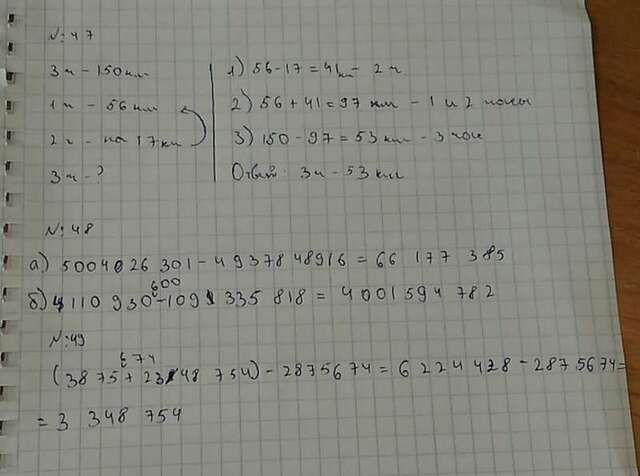 №:47
3ч – 150км
1ч – 56 км
2ч – на 17 км
3ч – ?
1) 56-17 = 41км – 2 ч.
2) 56 + 41 = 97 км – 1 и 2 часы
3) 150 - 97 = 53 км – 3 час
Ответ: 3ч – 53 км
№:48
а) 5004026 301 – 4 9378 48916 = 66 177 385
б) 4110 930 600 - 109 335 818 = 4001594 782
№:49
(3875 674 + 2348 754) – 2875674 = 6 224 428 – 2875674 =
= 3 348 754